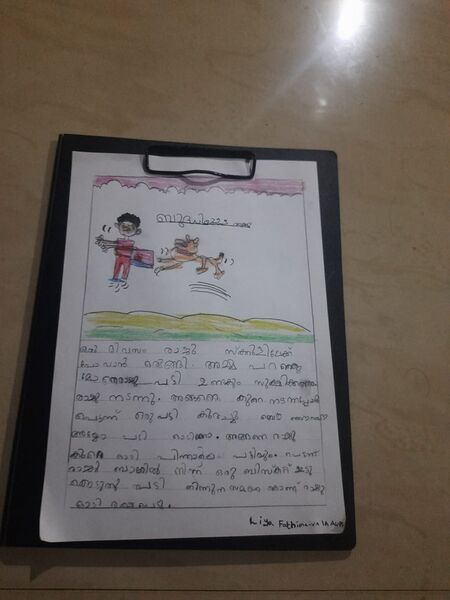 ഒരു ദിവസം രാജു സ്കൂളിലേക്ക്
പോവാൻ ഒരുങ്ങി. അമ്മ പറഞ്ഞു
പട്ടി ഉണ്ടാകും സൂക്ഷിക്കണം.
രാജു നടന്നു. അങ്ങനെ കുറെ നടന്നപ്പോൾ
പെട്ടെന്ന് ഒരു പട്ടി കുരച്ചു
അങ്ങനെ രാജു
കുറെ ഓടി പിന്നാലെ പട്ടിയും. പെട്ടന്ന്
രാജു ബാഗിൽ നിന്ന് ഒരു ബിസ്കറ്റ്
കൊടുത്തു പട്ടി തിന്നുന്ന സമയം രാജു
ഓടി രക്ഷപെട്ടു.
Liya Fathima